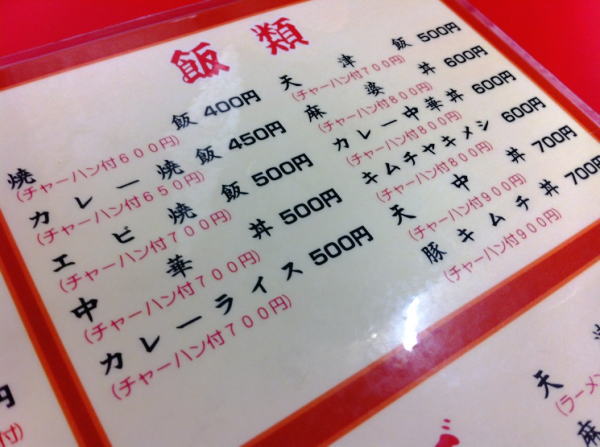 飯類
焼飯 400円
(チャーハン付600円)
カレー焼飯 450円
(チャーハン付650円)
エビ焼飯 500円
(チャーハン付700円)
中華丼 500円
(チャーハン付700円)
カレーライス 500円
(チャーハン付700円)
天津飯 500円
(チャーハン付700円)
麻婆丼 600円
(チャーハン付800円)
カレー中華丼 600円
(チャーハン付800円)
キムチヤキメシ 600円
(チャーハン付800円)
天中丼 700円
(チャーハン付900円)
豚キムチ丼 700円
(チャーハン付900円)
円
付)
天
(ラーメン
麻